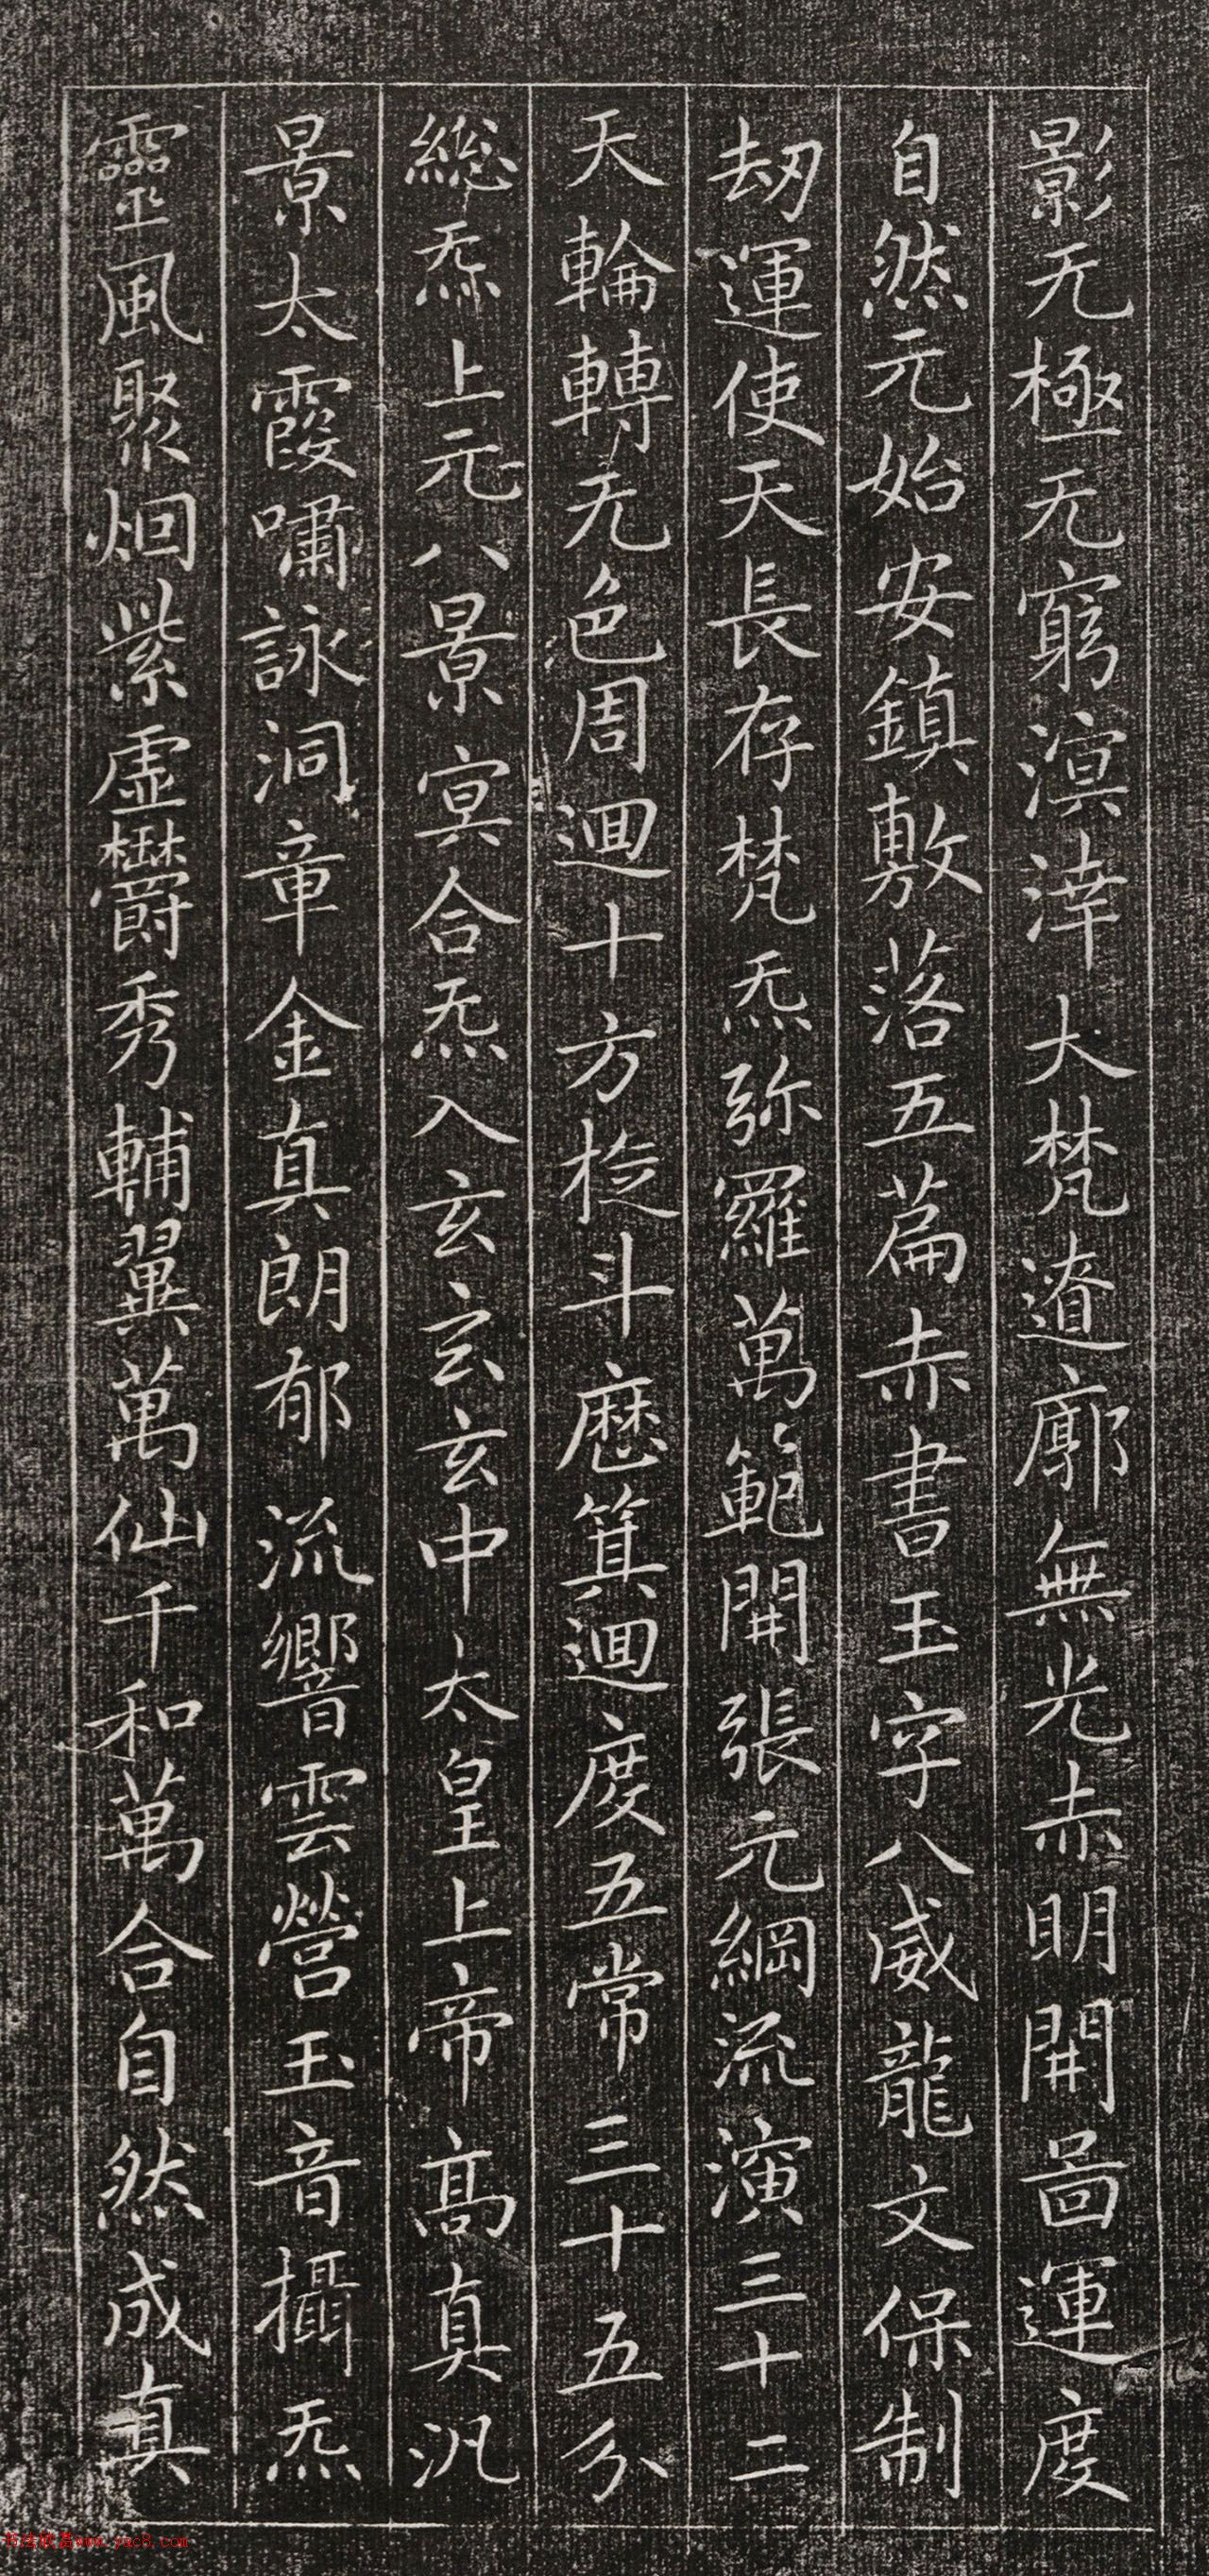 影无極无窮溟涬大梵遼廓無光赤明開啚運度
自然元始安鎮敷落五篇赤書玉字八威龍文保制
刧運使天長存梵炁弥羅萬範開張元綱流演三十二
天輪轉无色周迴十方旋斗歷箕迴度五常三十五分
総炁上元八景冥合炁入玄玄玄中太皇上帝高真汎
景太霞嘯詠洞章金真朗郁流響雲營玉音攝炁
靈風聚烟紫虛欝秀輔翼萬仙千和萬合自然成真
书法欣赏www.yac8.com